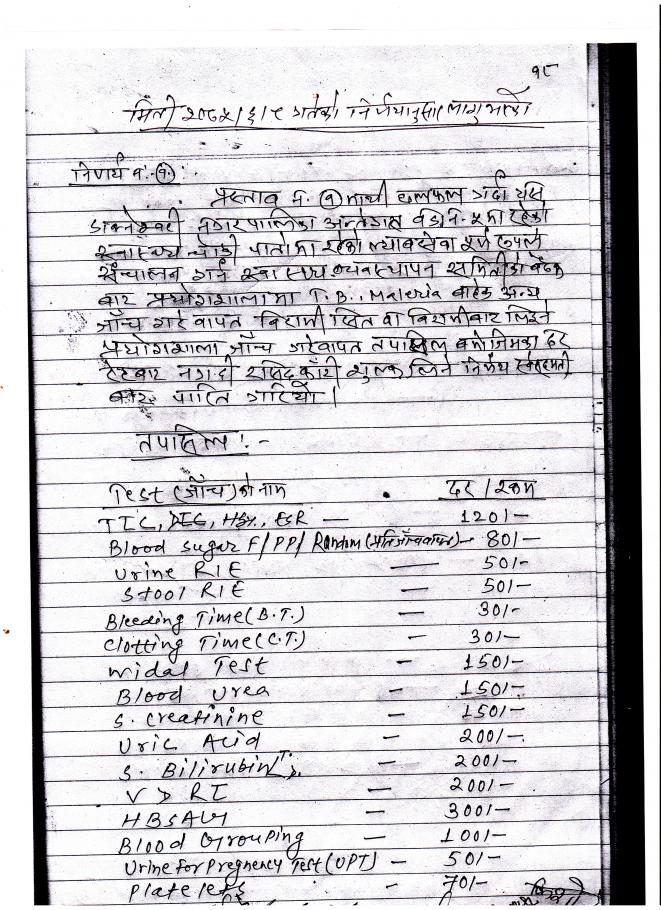 १८
मिती २०७५/६/९ गतेको निर्णयानुसार लागु भएको
निर्णय नं.-१.
प्रस्ताव नं. १ माथी छलफल गर्दा यस
डाक्नेश्वरी नगरपालिका अन्तरगत वडा नं.- ५ मा रहेको
स्वास्थ्य चौकी पातोमा रहेको ल्याव सेवा पूर्ण रुपले
संञ्चालन गर्न स्वास्थ्य व्यवस्थापन समितीको बैठक
बाट प्रयोगशालामा T.B., Maleria बाहेक अन्य
जाँच गरे वापत बिरामी स्थित वा बिरामीबाट लिइने
प्रयोगशाला जाँच गरेवापत तपसिल बमोजिमका दर
रेटबाट नगदी रसिद काटी शुल्क लिने निर्णय सर्वसहमती
बाट पारित गरियो।
तपासिल :-
Test (जाँच) को नाम दर/रकम
TLC, DLC, Hb%, ESR — 120/-
Blood sugar F/PP/Random (प्रति जाँच वापत) - 80/-
Urine R/E — 50/-
Stool R/E 50/-
Bleeding Time (B.T.) — 30/-
Clotting Time (C.T.) — 30/-
Widal Test — 150/-
Blood Urea — 150/-
S. Creatinine — 150/-
Uric Acid — 200/-
S. Bilirubin T. D. — 200/-
VDRL — 200/-
HBsAg — 300/-
Blood Grouping — 100/-
Urine for Pregnency Test (UPT) - 50/-
Platelets - 70/-